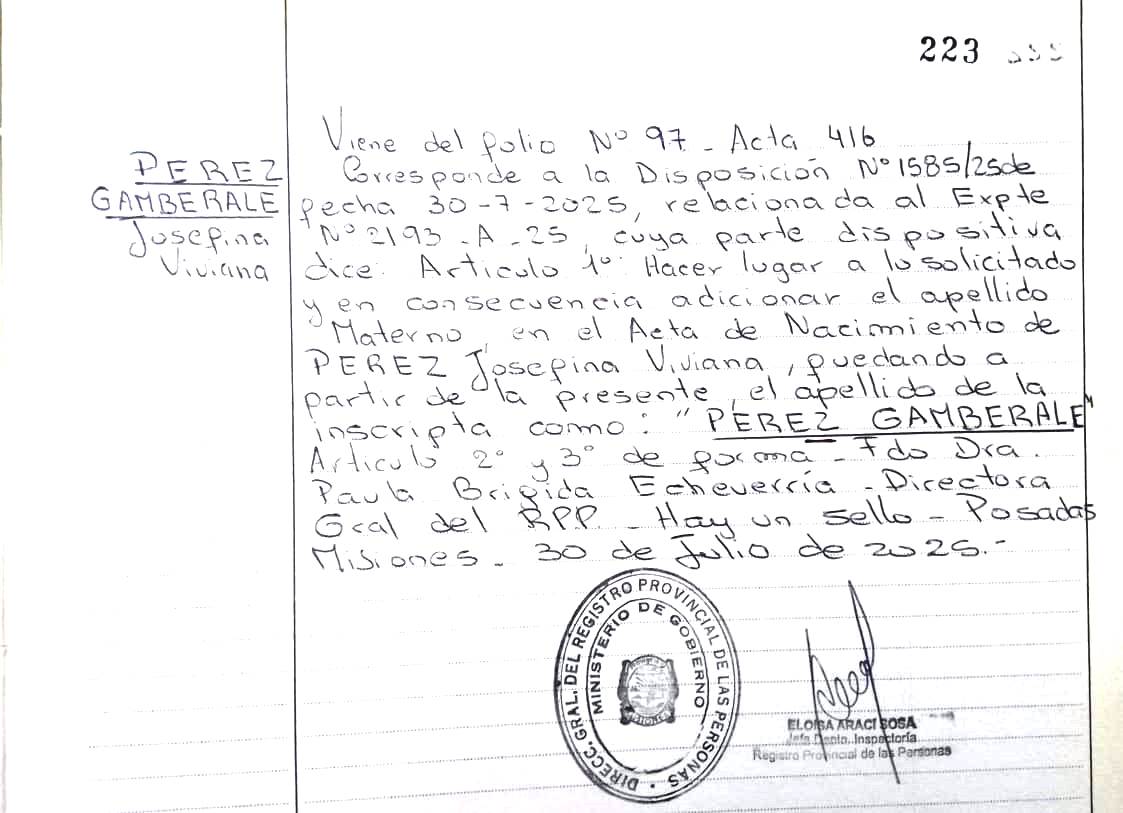 223
PEREZ
GAMBERALE
Josefina
Viviana
Viene del folio Nº 97 - Acta 416
Corresponde a la Disposición Nº 1585/25 de
fecha 30-7-2025, relacionada al Expte
Nº 2193 - A - 25, cuya parte dispositiva
dice: Articulo 1º: Hacer lugar a lo solicitado
y en consecuencia adicionar el apellido
Materno, en el Acta de Nacimiento de
PEREZ Josefina Viviana, quedando a
partir de la presente, el apellido de la
inscripta como: "PEREZ GAMBERALE"
Articulo 2º y 3º de forma - Fdo Dra.
Paula Brigida Echeverría - Directora
Gral del RPP. - Hay un sello - Posadas
Misiones - 30 de Julio de 2025.-
DIRECC. GRAL. DEL REGISTRO PROVINCIAL DE LAS PERSONAS
MINISTERIO DE GOBIERNO
MISIONES
ELOISA ARACI SOSA
Jefa Depto. Inspectoría
Registro Provincial de las Personas